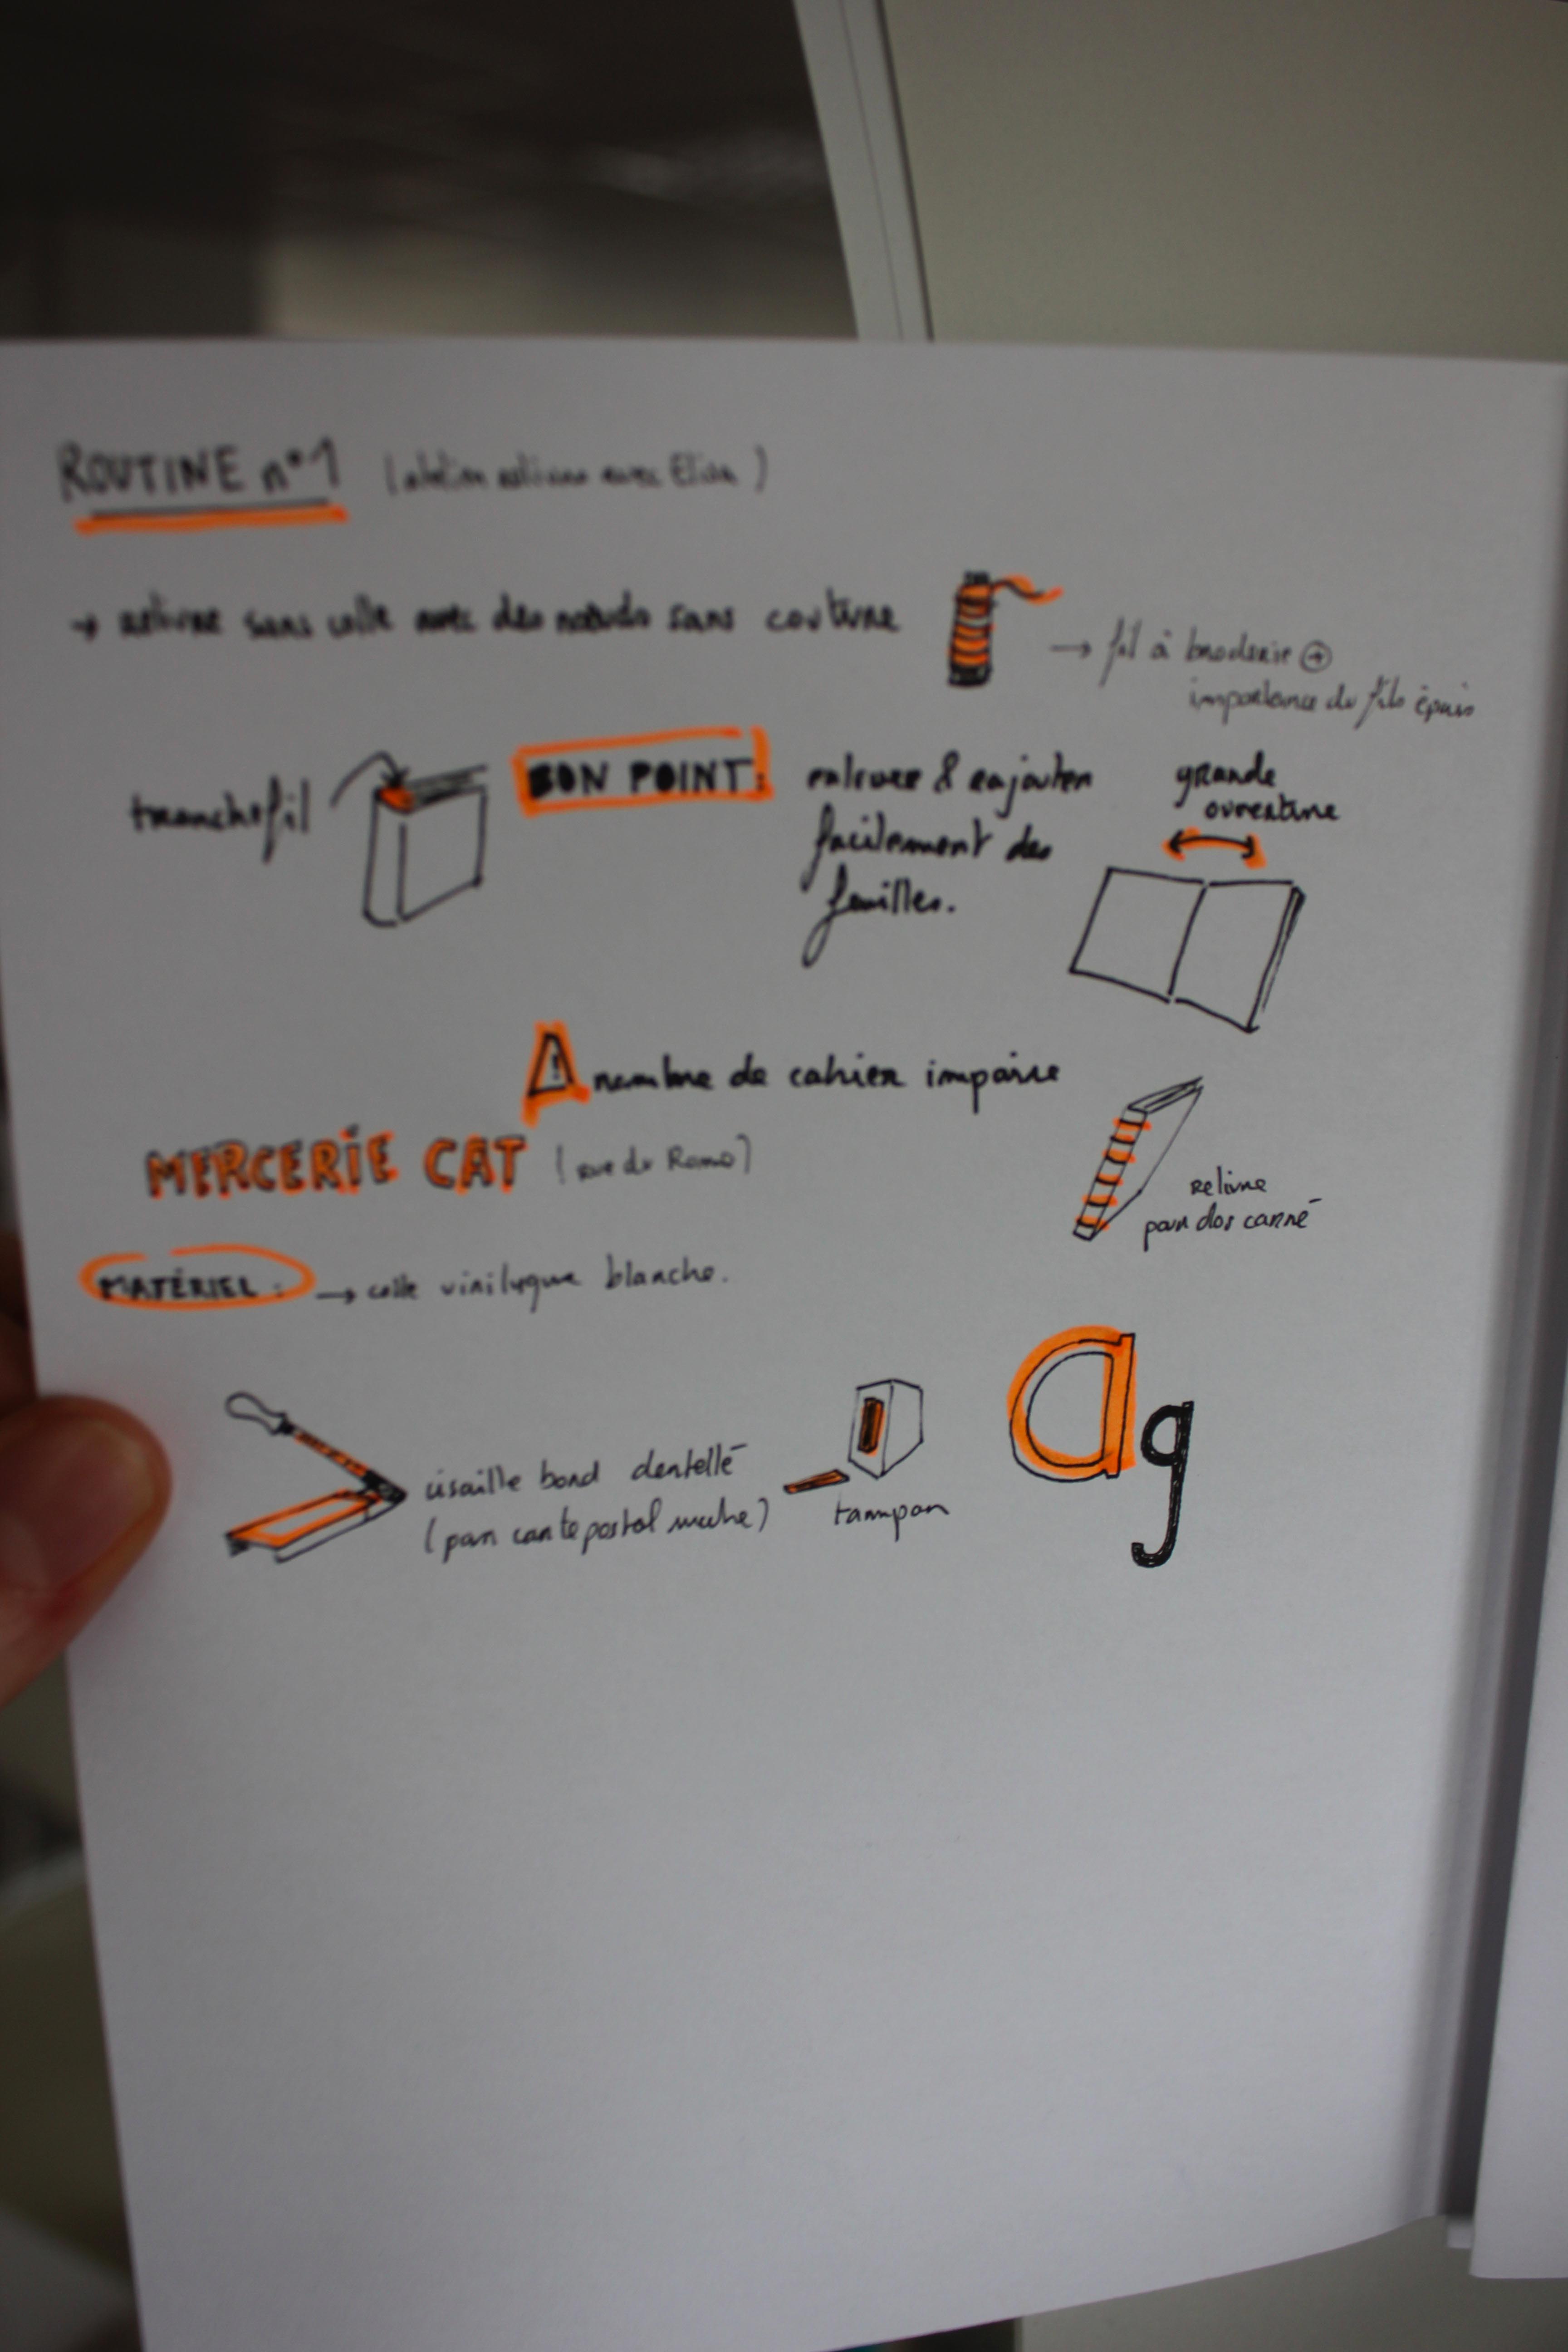 ROUTINE n°1 (atelier reliure avec Elisa)
→ relivre sans colle avec des nœuds sans couture
→ fil à broderie ⊕
importance du fils épais
tranchefil
BON POINT:
enlever & rajouter
facilement des
feuilles.
grande
ouverture
⚠ nombre de cahier impaire
MERCERIE CAT (rue du)
relivre
par dos carré
MATÉRIEL : → colle vinilyque blanche.
cisaille bord dentellé
(par carte postal)
tampon
ag